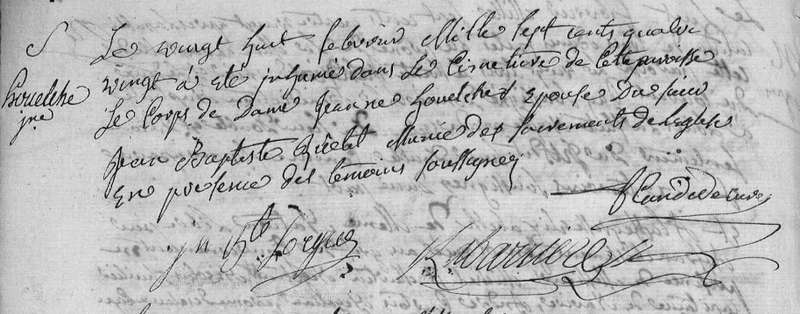 S
houelche
jne
Le vingt huit febvrier Mille sept cents quatre
vingt à eté inhumé dans Le Cimetiere de Cete paroisse
Le Corps de Dame Jeanne houelche Epouse Du sieur
Jean Baptiste Munie des sacrements de leglise
En presence des temoins soussignez
jn Bte